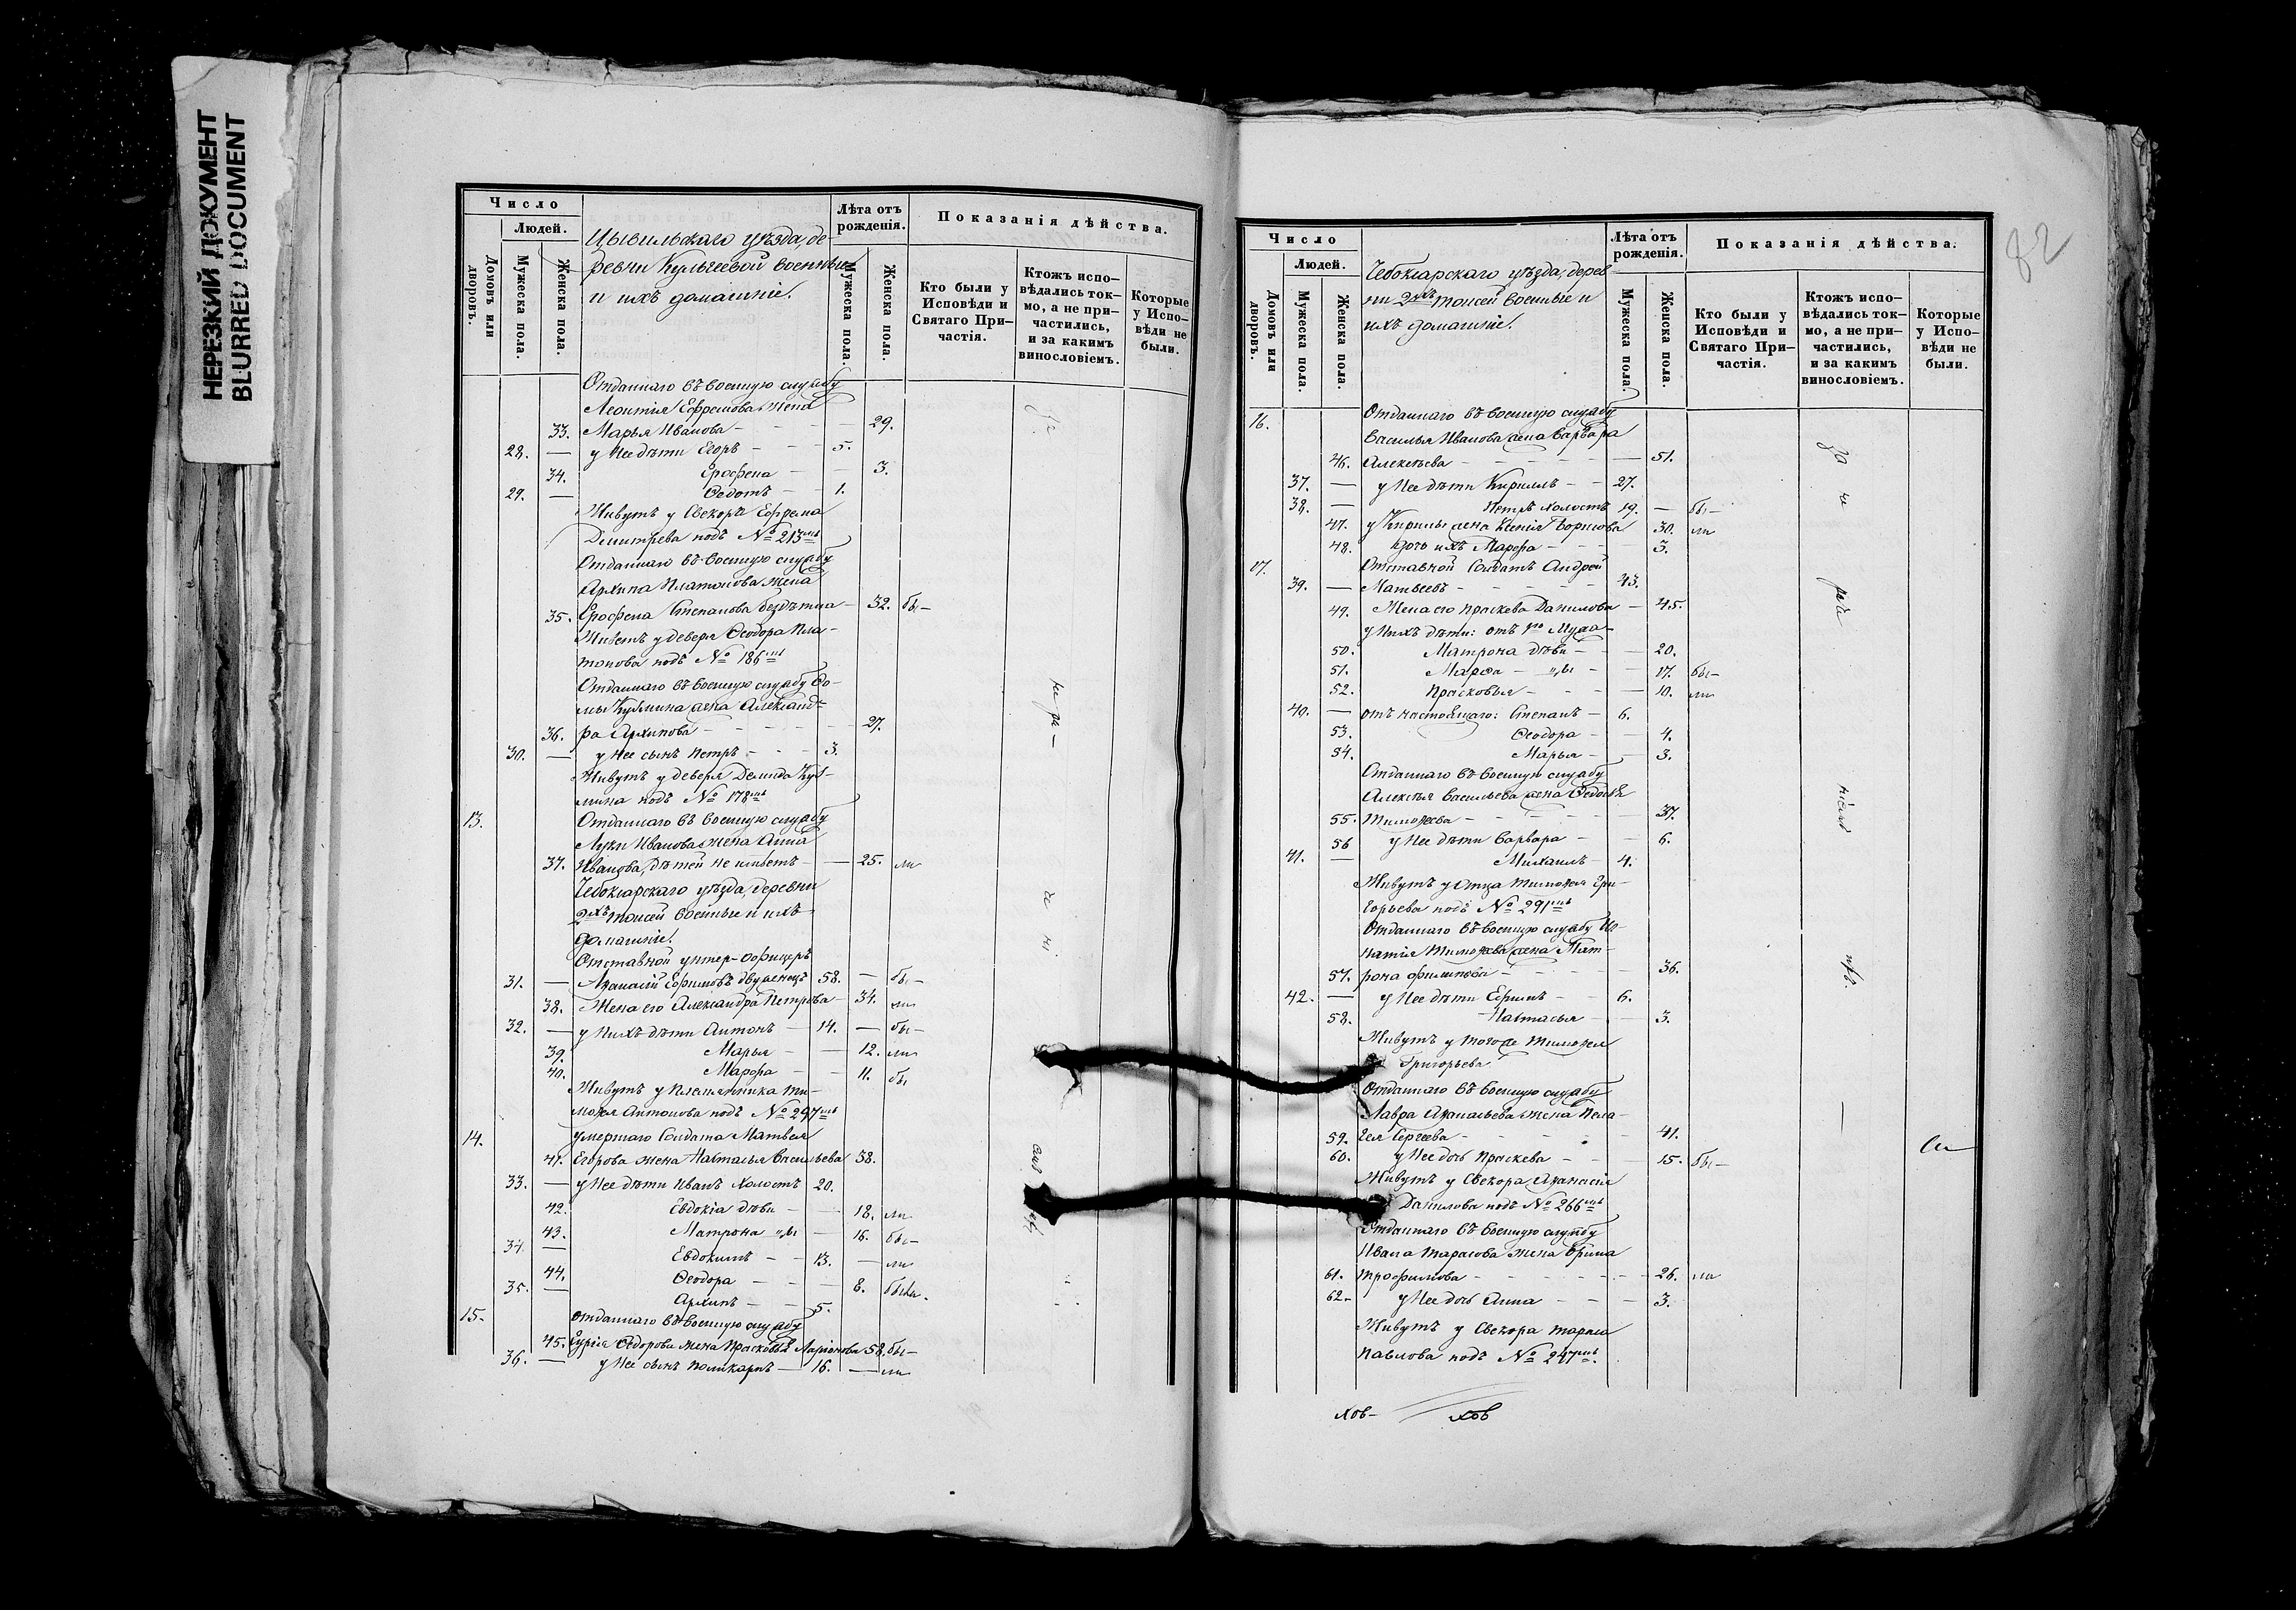 НЕРЕЗКИЙ ДОКУМЕНТ
BLURRED DOCUMENT
Число
Людей.
Домовъ или дворовъ.
Мужеска пола.
Женска пола.
Цывильскаго уѣзда, де-
ревни Кульгеевой военные
и ихъ домашніе.
Лѣта отъ рожденія.
Мужеска пола.
Женска пола.
Показанія дѣйства.
Кто были у Исповѣди и Святаго При-частія.
Ктожъ испо-вѣдались ток-мо, а не при-частились, и за какимъ винословіемъ.
Которые у Испо-вѣди не были.
Отданнаго въ военную службу
Леонтія Ефремова жена
33. Марья Иванова - - 29.
28. — у нее дѣти Егоръ - - 5.
34. Ерофена - - 3.
29. — Ѳедотъ - 1.
Живутъ у Свекора Ефрема
Дмитрева подъ № 213мъ
Отданнаго въ военную службу
Архипа Платонова жена
35. Ерофена Степанова бездѣтна - 32. бы-
Живетъ у деверя Ѳеодора Пла-
тонова подъ № 186мъ
Отданнаго въ военную службу Ѳо-
мы Кузмина жена Александ-
36. ра Архипова - - - 27.
30. — у нее сынъ Петръ - - 3.
Живутъ у деверя Демида Куз-
мина подъ № 178мъ
13. Отданнаго въ военную службу
Луки Иванова жена Анна
37. Иванова, дѣтей не имѣетъ - — 25. ли
Чебоксарскаго уѣзда, деревни
2хъ Тоисей военные и ихъ
домашніе.
Отставной унтер-офицеръ
31. — Аѳанасій Ефимовъ двуженецъ 58. — бы-
38. Жена его Александра Петрова - 34. ли
32. — у нихъ дѣти Антонъ — 14. — бы-
39. Марья - — 12. ли
40. Марфа - - 11. бы
Живутъ у племянника Ти-
моѳея Антонова подъ № 297мъ
14. умершаго Солдата Матвея
41. Егорова жена Настасья Васильева 58.
33. — у нее дѣти Иванъ холостъ 20.
42. Евдокія дѣви - — 18. ли
43. Матрона „ы — 16. бы-
34. — Евдокимъ - - 13. — ли
44. Ѳеодора - - — 8. были.
35. — Архипъ - - 5.
15. отданнаго въ военную службу
45. Гурія Ѳедорова жена Прасковья Ларіонова 58. бы-
36. — у нее сынъ Поликарпъ — 16. — ли
82
Число
Людей.
Домовъ или дворовъ.
Мужеска пола.
Женска пола.
Чебоксарскаго уѣзда, дерев
ни 2хъ Тоисей военные и
ихъ домашніе.
Лѣта отъ рожденія.
Мужеска пола.
Женска пола.
Показанія дѣйства.
Кто были у Исповѣди и Святаго При-частія.
Ктожъ испо-вѣдались ток-мо, а не при-частились, и за какимъ винословіемъ.
Которые у Испо-вѣди не были.
16. Отданнаго въ военную службу
Василья Иванова жена Варвара
46. Алексѣева - - - — 51.
37. — у нее дѣти Кирилъ - - 27.
38. — Петръ холостъ 19. — бы-
47. у Кирилы жена Ксенія Борисова 30. ли
48. дочь ихъ Марфа - - - 3.
17. Отставной Солдатъ Андрей
39. — Матвеевъ - - - 43.
49. Жена его Праскева Данилова — 45.
у нихъ дѣти: отъ 1го мужа-
50. Матрона дѣви - - 20.
51. Марѳа - „ы - — 17. бы-
52. Прасковья - - - — 10. ли
40. — отъ настоящаго: Степанъ - 6.
53. Ѳеодора - — 4.
54. Марья - - 3.
Отданнаго въ военную службу
Алексѣя Васильева жена Ѳедосья
55. Тимоѳеева - - - - 37.
56 у нее дѣти Варвара - - 6.
41. — Михаилъ - 4.
Живутъ у отца Тимоѳея Гри-
горьева подъ № 291мъ
Отданнаго въ военную службу Иг-
натія Тимоѳева жена Мат-
57. рона Филипова - - - - 36.
42. — у нее дѣти Ефимъ - - 6.
58. Настасья - - 3.
Живутъ у того же Тимоѳея
Григорьева
Отданнаго въ военную службу
Лавра Аѳанасьева жена Пела-
59. гея Сергеева - - - - 41.
60. у нее дочь Праскева - - - 15. бы-
Живутъ у Свекора Аѳанасія
Данилова подъ № 266мъ
Отданнаго въ военную службу
Ивана Тарасова жена Ірина
61. Трофимова - - - - 26. ли
62. у нее дочь Анна - - - 3.
Живутъ у Свекора Тараса
Павлова подъ № 247мъ.